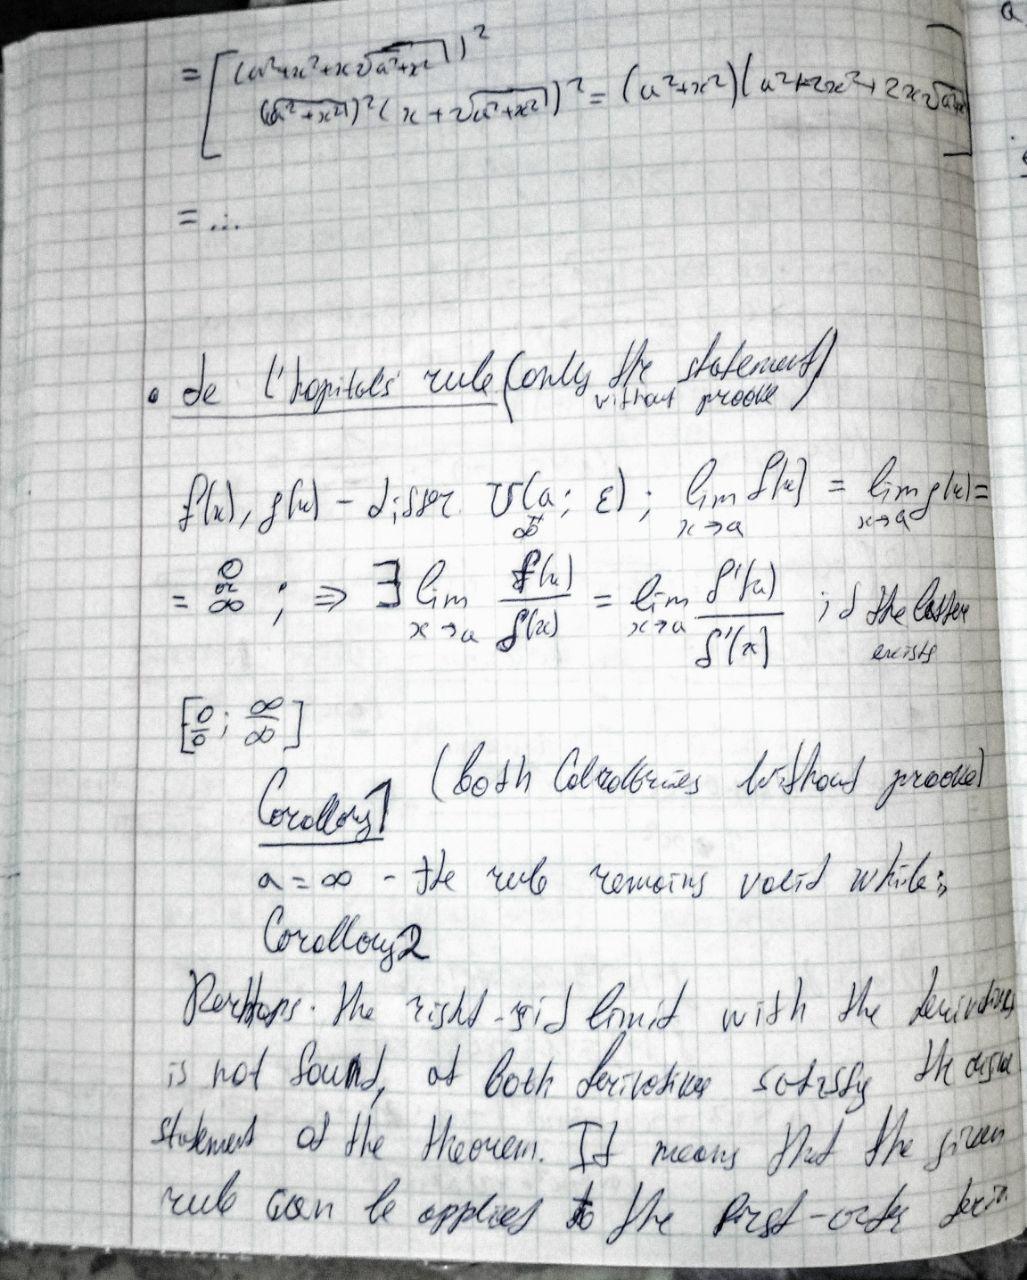 = [ (a²+x²+x√a²+x²)²
(√a²+x²)²(x+2√a²+x²)² = (a²+x²)(a²+2x²+2x√a²+x² ]
= ...
• de l'hopitals rule (only the statement)
without proove
f(x), g(x) - differ. U(a; ε); lim f(x) = lim g(x) =
∞ x→a x→a
= 0 or ∞ ; ⇒ ∃ lim f(x)/g(x) = lim f'(x)/g'(x) if the latter
x→a x→a exists
[0/0; ∞/∞]
(both Corollories without proove)
Corollory 1
a = ∞ - the rule remains valid while;
Corollory 2
Perhaps. the right-sid limit with the derivatives
is not found, at both derivatives satisfy the
statement of the theorem. It means that the given
rule can be applied to the first-order deriv.